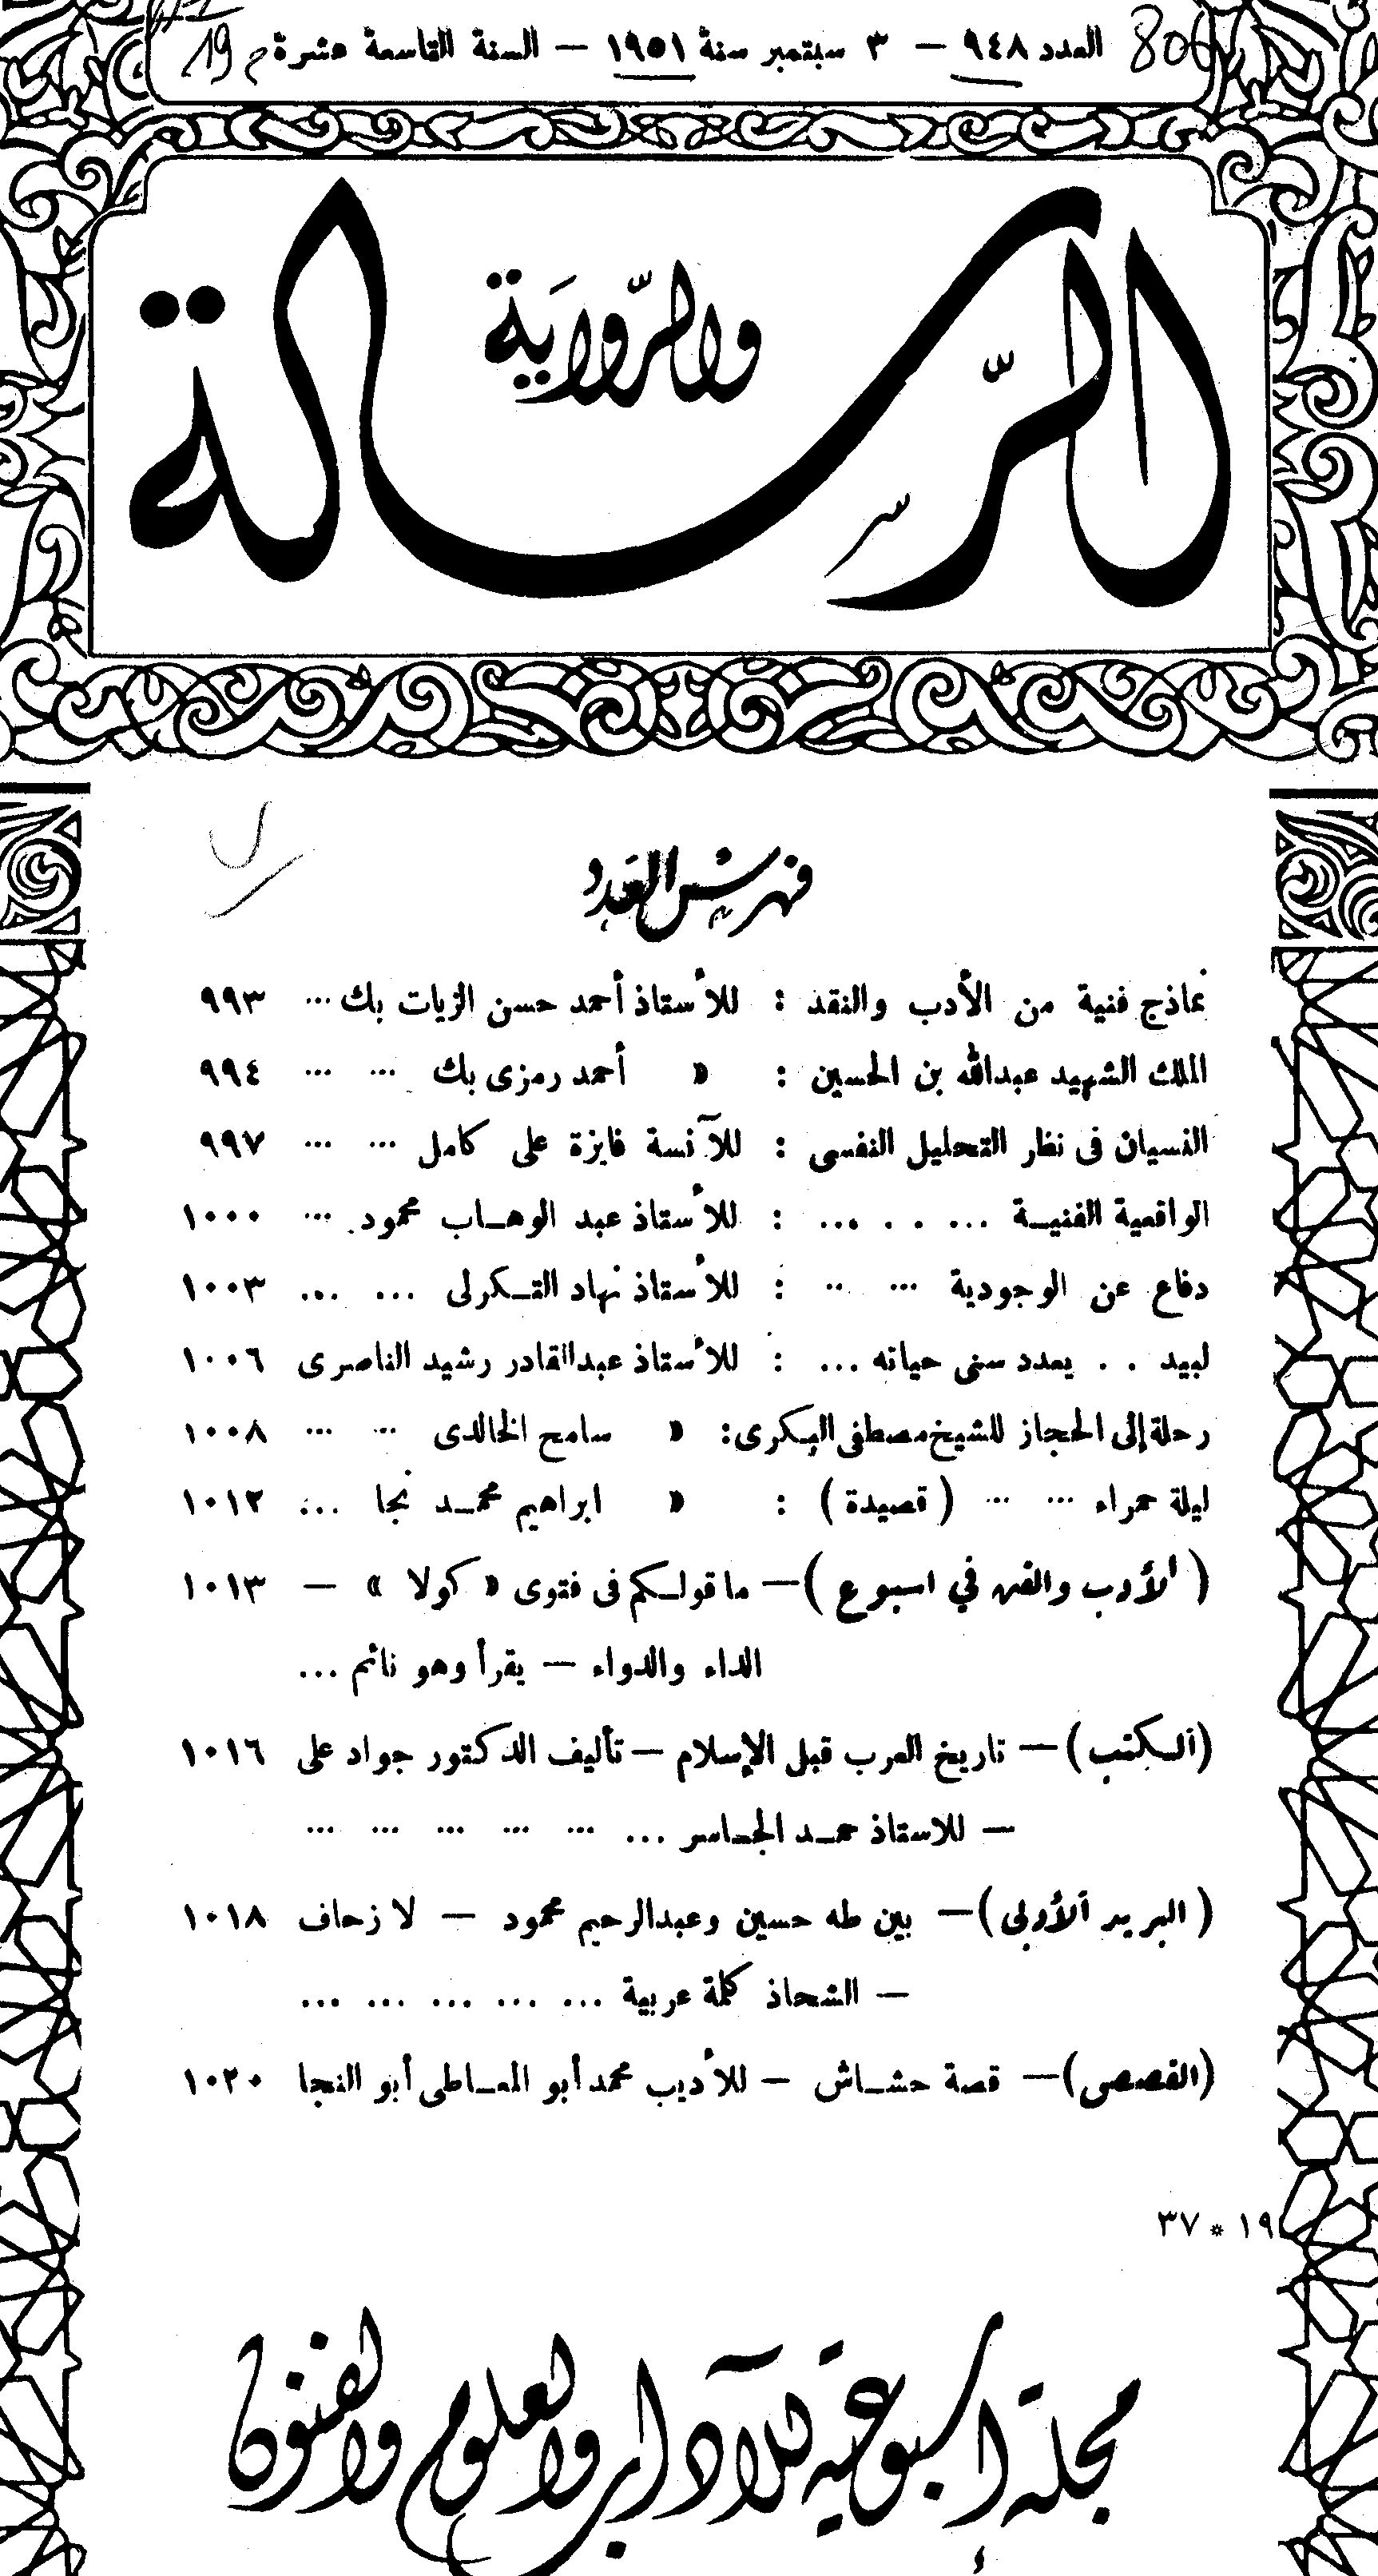 العدد ٩٤٨ — ٣ سبتمبر سنة ١٩٥١ — السنة التاسعة عشرة
الرسالة
والرواية
فهرس العدد
نماذج فنية من الأدب والنقد : للأستاذ أحمد حسن الزيات بك ... ٩٩٣
الملك الشهيد عبدالله بن الحسين : « أحمد رمزى بك ... ... ٩٩٤
النسيان فى نظر التحليل النفسى : للآنسة فايزة على كامل ... ... ٩٩٧
الواقعية الفنيـة ... . . ... : للأستاذ عبد الوهـاب محمود ... ١٠٠٠
دفاع عن الوجودية ... .. : للأستاذ نهاد التـكرلى ... ... ١٠٠٣
لبيد . . يعدد سنى حياته ... : للأستاذ عبدالقادر رشيد الناصرى ١٠٠٦
رحلة إلى الحجاز للشيخ مصطفى البكرى : « سامح الخالدى ... ... ١٠٠٨
ليلة حمراء ... ... ( قصيدة ) : « ابراهيم محمـد نجا ... ١٠١٢
( الأدب والفن في اسبوع ) — ما قولـكم فى فتوى « كولا » — ١٠١٣
الداء والدواء — يقرأ وهو نائم ...
(الـكتب) — تاريخ العرب قبل الإسلام — تأليف الدكتور جواد على ١٠١٦
— للاستاذ حمـد الجـاسر ... ... ... ... ... ...
( البريد الأدبى ) — بين طه حسين وعبدالرحيم محمود — لا زحاف ١٠١٨
— الشحاذ كلمة عربية ... ... ... ... ...
(القصص) — قصة حشـاش — للأديب محمد أبو المعـاطى أبو النجا ١٠٢٠
١٩ * ٣٧
مجلة أسبوعية للآداب والعلوم والفنون